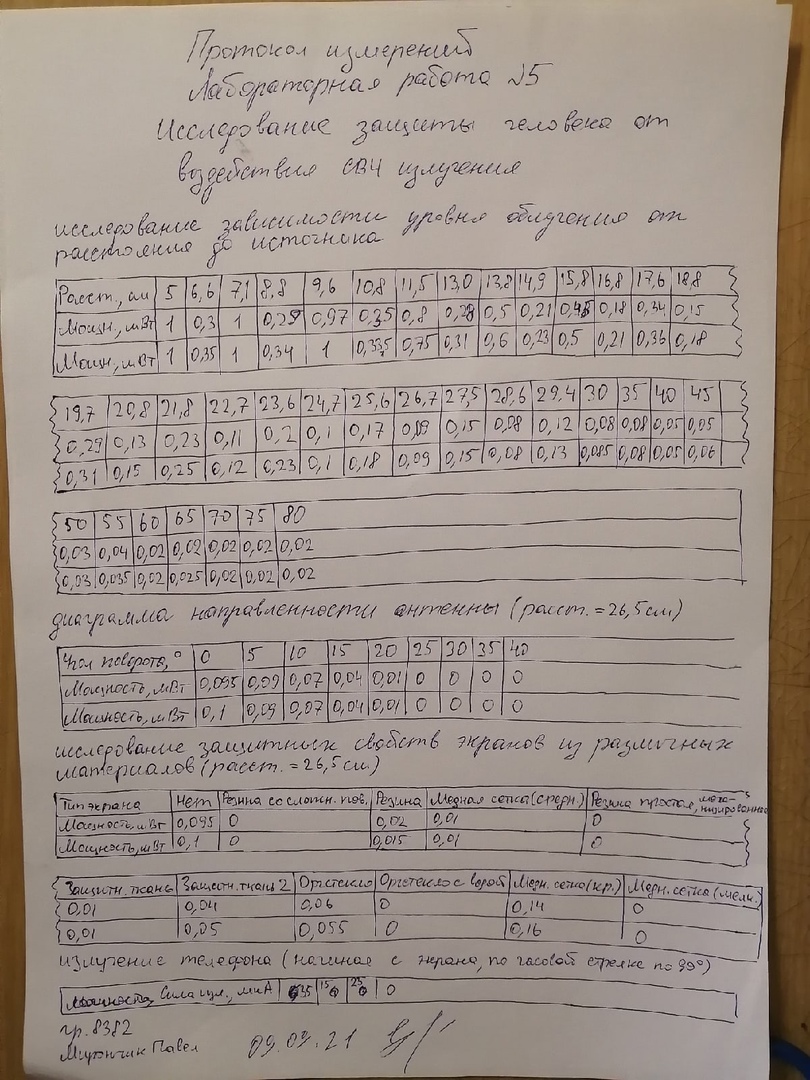 Протокол измерений
Лабораторная работа №5
Исследование защиты человека от
воздействия СВЧ излучения
исследование зависимости уровня облучения от
расстояния до источника
Расст., см 5 6,6 7,1 8,8 9,6 10,8 11,5 13,0 13,8 14,9 15,8 16,8 17,6 18,8
Мощн., мВт 1 0,3 1 0,29 0,97 0,35 0,8 0,28 0,5 0,21 0,45 0,18 0,34 0,15
Мощн., мВт 1 0,35 1 0,34 1 0,335 0,75 0,31 0,6 0,23 0,5 0,21 0,36 0,18
19,7 20,8 21,8 22,7 23,6 24,7 25,6 26,7 27,5 28,6 29,4 30 35 40 45
0,29 0,13 0,23 0,11 0,2 0,1 0,17 0,09 0,15 0,08 0,12 0,08 0,08 0,05 0,05
0,31 0,15 0,25 0,12 0,23 0,1 0,18 0,09 0,15 0,08 0,13 0,085 0,08 0,05 0,06
50 55 60 65 70 75 80
0,03 0,04 0,02 0,02 0,02 0,02 0,02
0,03 0,035 0,02 0,025 0,02 0,02 0,02
диаграмма направленности антенны (расст. = 26,5 см)
Угол поворота, ° 0 5 10 15 20 25 30 35 40
Мощность, мВт 0,095 0,09 0,07 0,04 0,01 0 0 0 0
Мощность, мВт 0,1 0,09 0,07 0,04 0,01 0 0 0 0
исследование защитных свойств экранов из различных
материалов (расст. = 26,5 см)
Тип экрана Нет Резина со сложн. пов. Резина Медная сетка (средн.) Резина простая, мета-
низированное
Мощность, мВт 0,095 0 0,02 0,01 0
Мощность, мВт 0,1 0 0,015 0,01 0
Защитн. ткань Защитн. ткань 2 Оргстекло Оргстекло с вороб Медн. сетка (кр.) Медн. сетка (мелк.)
0,01 0,04 0,06 0 0,14 0
0,01 0,05 0,055 0 0,16 0
излучение телефона (начиная с экрана, по часовой стрелке по 90°)
Сила изл., мкА 35 15 25 0
гр. 8382
Мирончик Павел 09.09.21